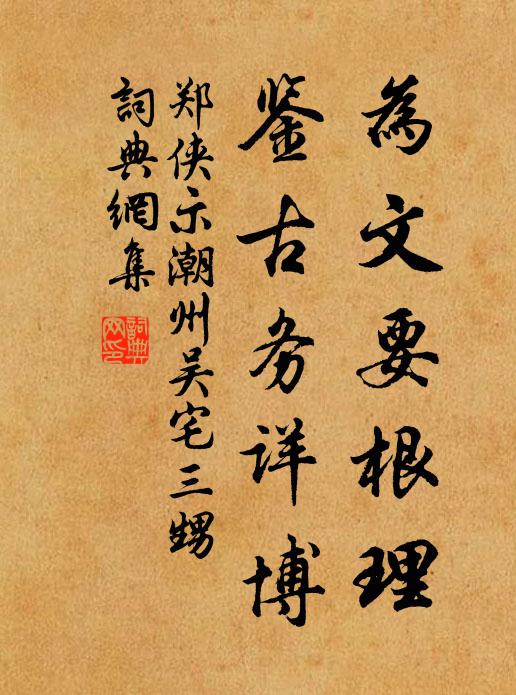 為文要根理
鉴古务详博
郑侠示潮州吴宅三甥
詞典網集
詞典
网印